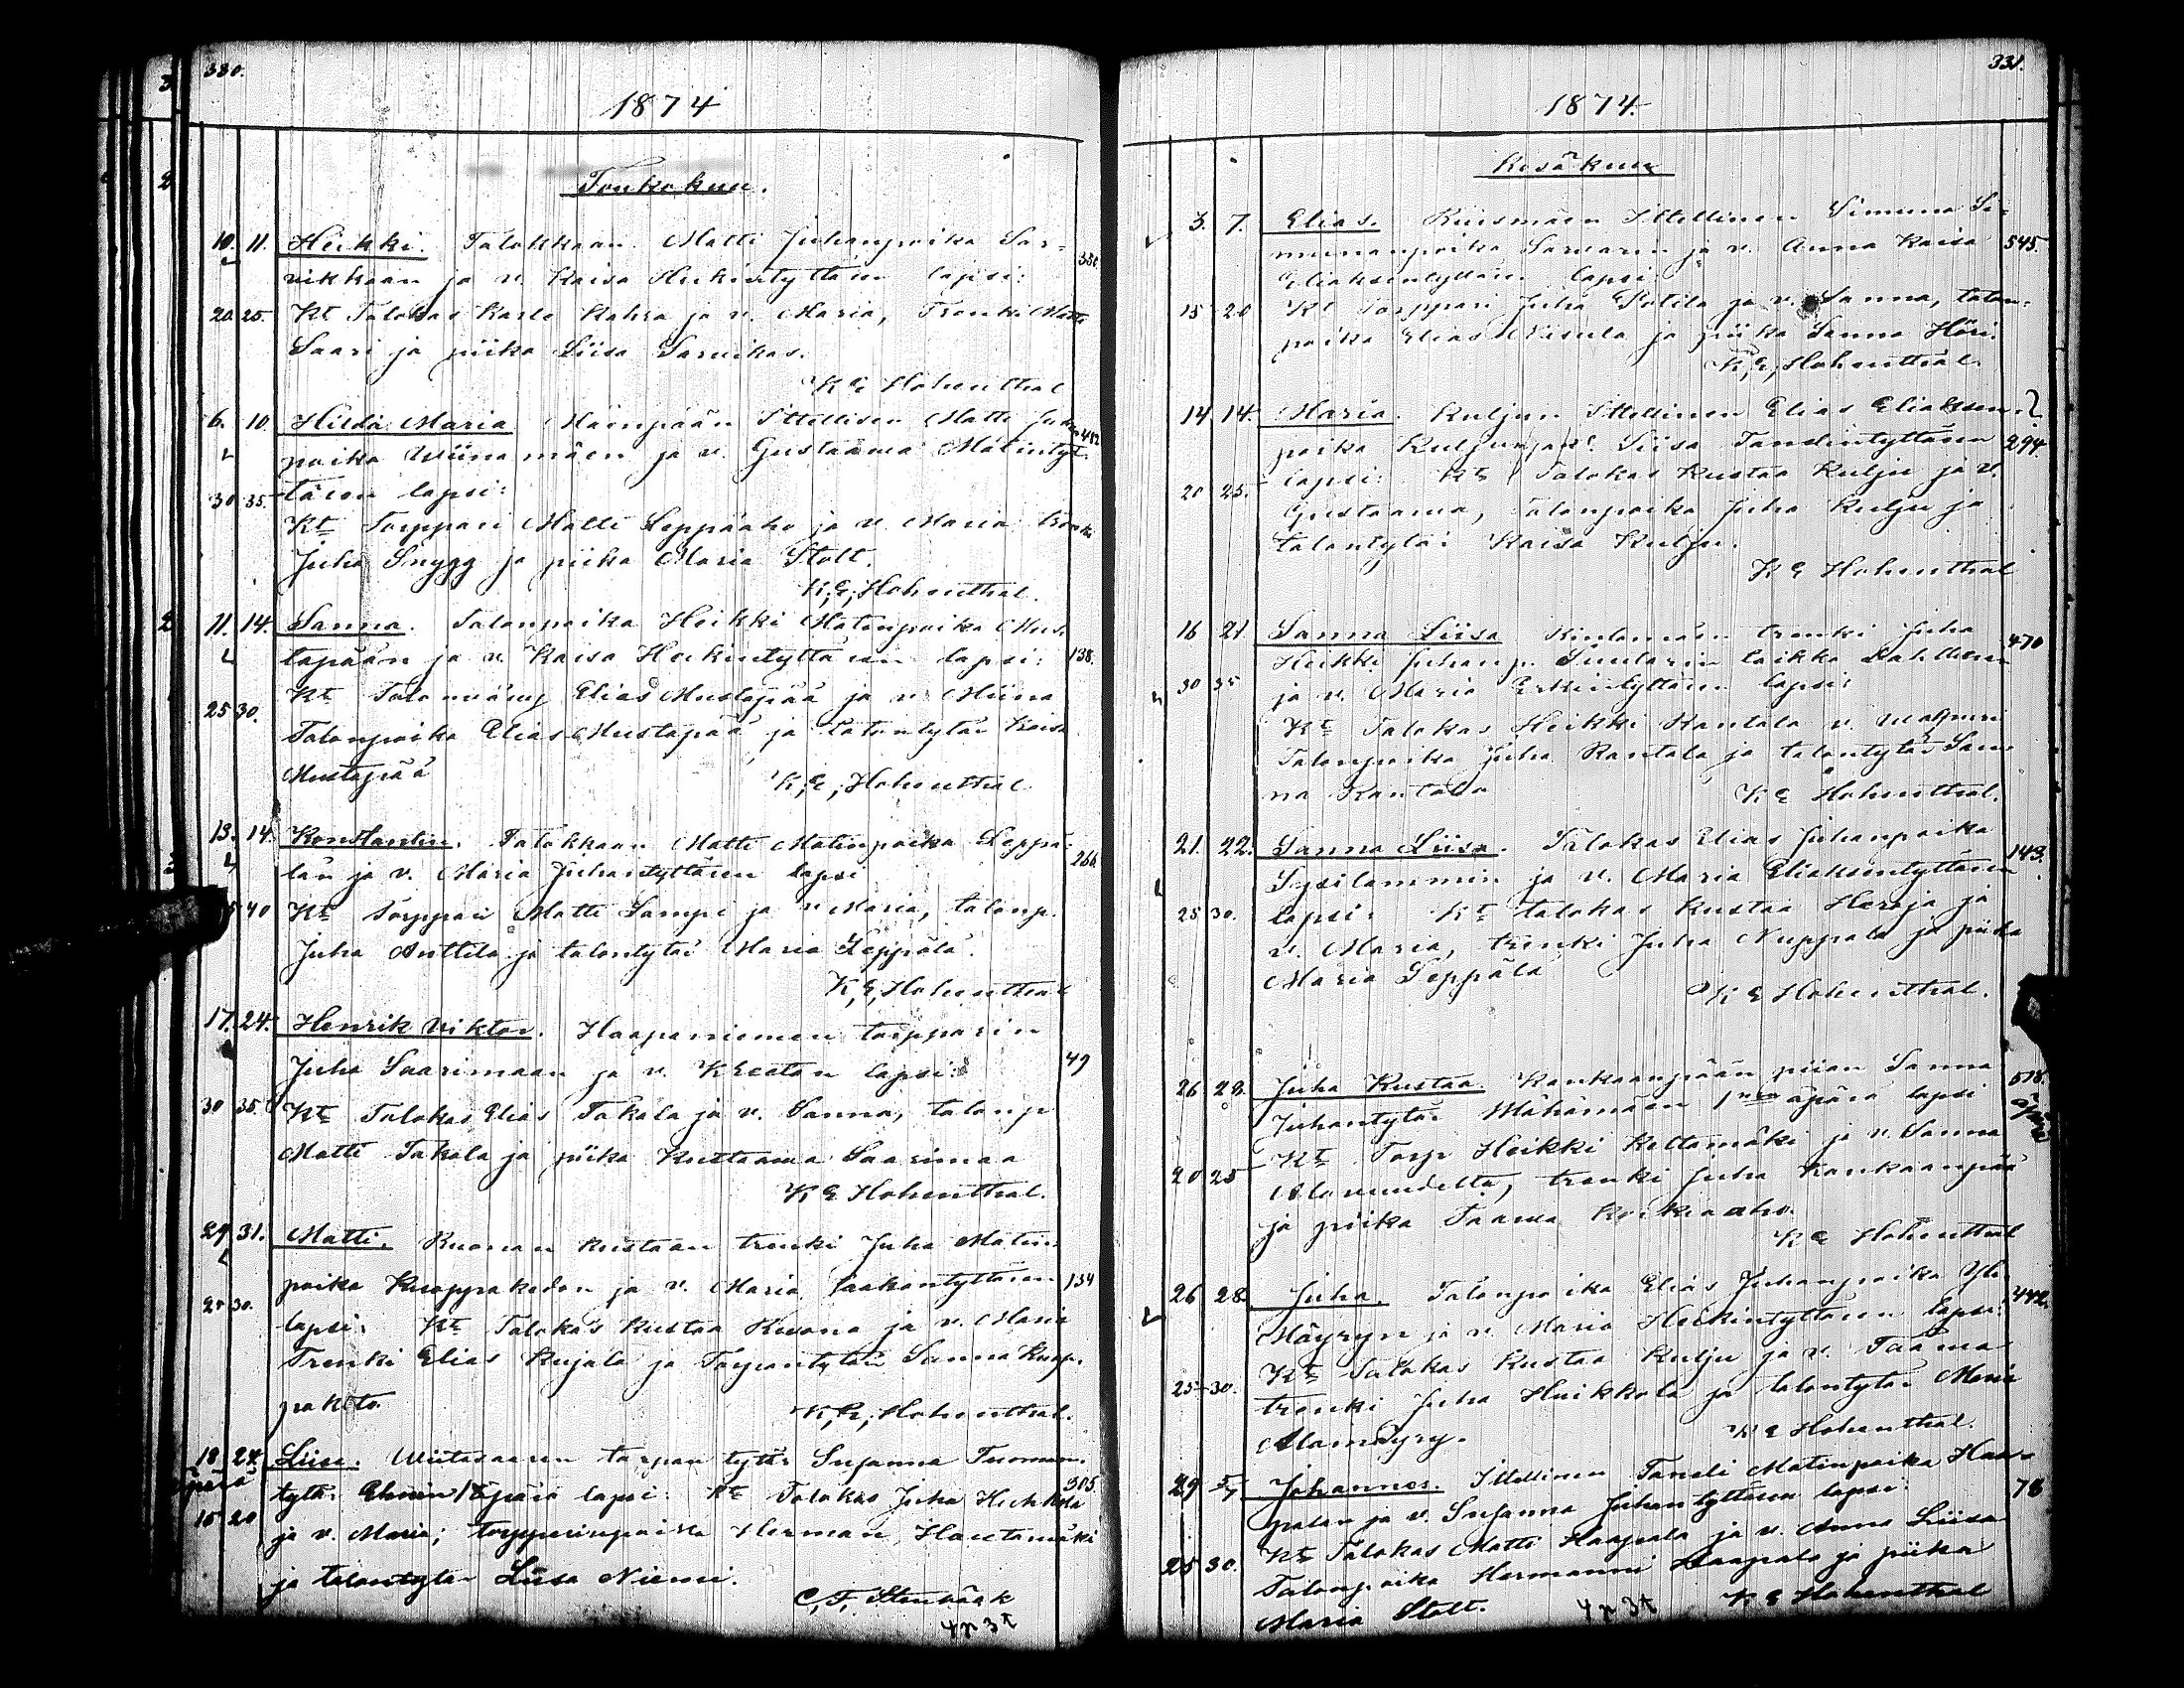 330.
1874
Toukokuu.
10. 11. Heikki. Talokkaan Matti Juhanpoika Sar-
vikkaan ja v. Kaisa Heikintyttären lapsi: 330.
20. 25. Kt Talokas Karle Kahra ja v. Maria, Trenki Matti
Saari ja piika Liisa Sarvikas.
K E Hohenthal
6. 10 Hilda Maria Mäenpään Ittellisen Matti Juhan
poika Wiinamäen ja v. Gustaawa Matintyt- 412
tären lapsi:
30 35. Kt Torppari Matti Leppäaho ja v. Maria trenki
Juha Snygg ja piika Maria Stolt.
K,E, Hohenthal.
11. 14. Sanna. Talonpoika Heikki Matinpoika Mus-
tapään ja v. Kaisa Heikintyttären lapsi: 138.
Kt Talonvävy Elias Mustapää ja v. Miina
25 30. Talonpoika Elias Mustapää ja talontytär Kaisa
Mustapää K,E, Hohenthal
13. 14. Konstantin. Talokkaan Matti Matinpoika Leppä-
län ja v. Maria Juhantyttären lapsi 266
40 Kt Torppari Matti Lampi ja v Maria, talonp.
Juha Anttila ja talontytär Maria Leppälä.
K,E, Hohenthal
17. 24. Henrik Viktor. Haapaniemen torpparin
Juha Saarimaan ja v. Kreetan lapsi: 49
30 35. Kt Talokas Elias Takala ja v. Sanna, talonp
Matti Takala ja piika Kustaawa Saarimaa
K E Hohenthal.
29 31. Matti. Kuonan Kustaan trenki Juha Matin
poika Kuoppakodon ja v. Maria Jaakontyttären 134
25 30. lapsi: Kt Talokas Kustaa Kuona ja v. Maria
Trenki Elias Kujala ja Torpantytär Sanna Kuop-
pakoto
K,E, Hohenthal.
18 24. Liisa. Wiitasaaren torpan tyttö Susanna Tuoman-
äpärä tytär äpärä lapsi: Kt Talokas Juha Huhtala 305.
15 20 ja v. Maria; torpparinpoika Herman Hautamäki
ja talontytär Liisa Niemi.
C,F, Stenbäck
4 p 3 t
331.
1874.
Kesäkuu
3. 7. Elias. Ruismäen Ittellinen Simuna Si-
munanpoika Sarvarin ja v. Anna Kaisa 545.
Eliaksentyttären lapsi:
15 20 Kt Torppari Juha Potila ja v. Sanna, talon-
poika Elias Niisula ja piika Sanna Höri.
K,E, Hohenthal.
14 14. Maria. Kuljun Ittellinen Elias Eliaksen-
poika Kuljun ja v. Liisa Tanelintyttären 294.
20 25. lapsi: Kt Talokas Kustaa Kulju ja v.
Gustaawa, talonpoika Juha Kulju ja
talontytär Kaisa Kulju.
K E Hohenthal
16 21 Sanna Liisa Kintamäen trenki Juha
Heikki Juhanp. Suularin 470
30 35 ja v. Maria Erkintyttären lapsi:
Kt Talokas Heikki Rantala v. Walpuri
Talonpoika Juha Rantala ja talontytär San-
na Rantala K E Hohenthal.
21. 22. Sanna Liisa. Talokas Elias Juhanpoika
Sysilammin ja v. Maria Eliaksentyttären 143.
25 30. lapsi: Kt talokas Kustaa Haroja ja
v. Maria, trenki Juha Nuppala ja piika
Maria Seppälä
K E Hohenthal.
26 28. Juha Kustaa. Kankaanpään piian Sanna 518.
Juhantytär Mähämäen äpärä lapsi äpärä
Kt Torp Heikki Kettamäki ja v. Sanna
20 25 Alavuudelta, trenki Juha Kankaanpää
ja piika Taawa Korkiaaho.
K E Hohenthal
26 28. Juha. Talonpoika Elias Juhanpoika Yli-
Mäyryn ja v. Maria Heikintyttären lapsi: 442.
Kt Talokas Kustaa Kulju ja v. Taawa
25 30. trenki Juha Huikkola ja talontytär Maria
Alamäyry. K E Hohenthal.
29 5/7 Johannes. Ittellinen Taneli Matinpoika Haa-
palan ja v. Susanna Juhantyttären lapsi: 78
25 30. Kt Talokas Matti Haapala ja v. Anna Liisa
Talonpoika Hermanni Haapala ja piika
Maria Stolt. 4 p 3 t K E Hohenthal